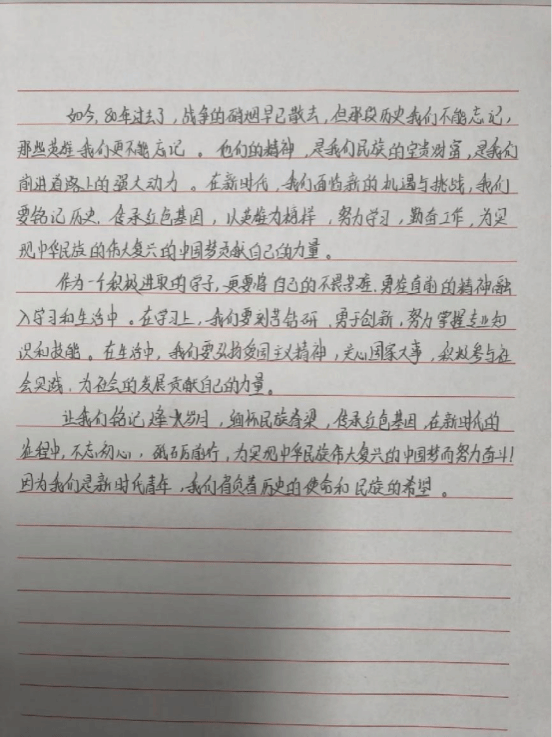 如今，80年过去了，战争的硝烟早已散去，但那段历史我们不能忘记，
那些英雄我们更不能忘记。他们的精神，是我们民族的宝贵财富，是我们
前进道路上的强大动力。在新时代，我们面临新的机遇与挑战，我们
要铭记历史，传承红色基因，以英雄为榜样，努力学习，勤奋工作，为实
现中华民族的伟大复兴的中国梦贡献自己的力量。
作为一个积极进取的学子，更要将自己的不畏苦难、勇往直前的精神融
入学习和生活中。在学习上，我们要刻苦钻研，勇于创新，努力掌握专业知
识和技能。在生活中，我们要弘扬爱国主义精神，关心国家大事，积极参与社
会实践，为社会的发展贡献自己的力量。
让我们铭记烽火岁月，缅怀民族脊梁，传承红色基因，在新时代的
征程中，不忘初心，砥砺前行，为实现中华民族伟大复兴的中国梦而努力奋斗！
因为我们是新时代青年，我们肩负着历史的使命和民族的希望。